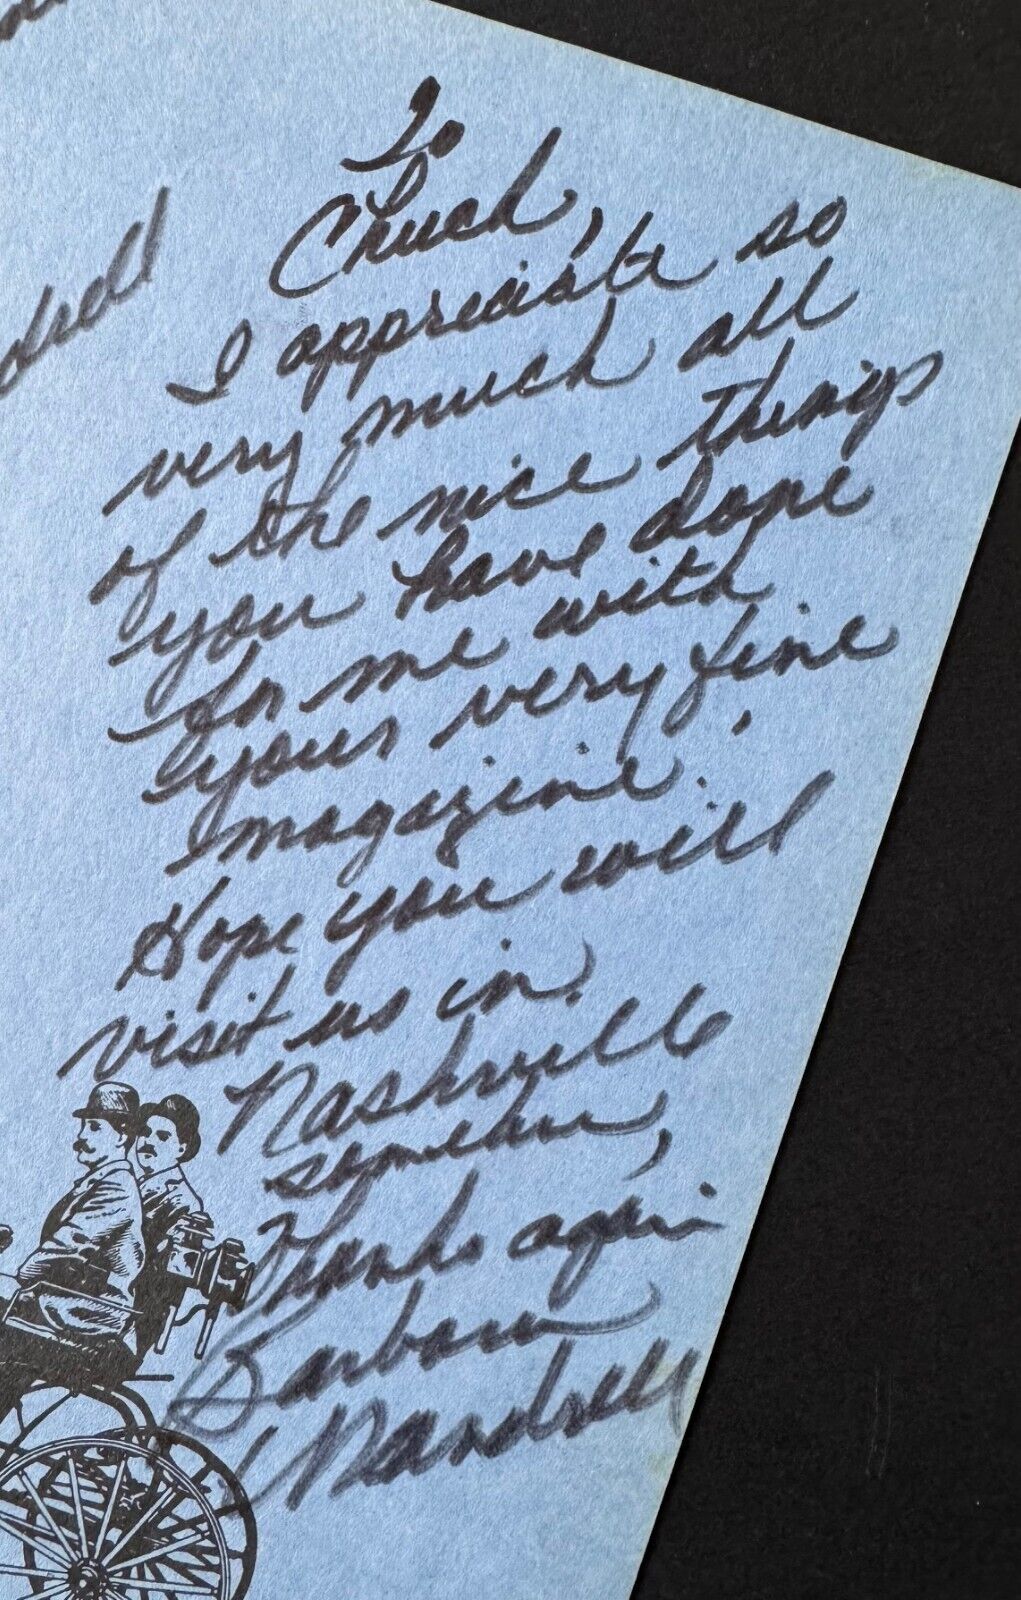 To
Chuck,
I appreciate so
very much all
of the nice things
you have done
for me with
your very fine
magazine.
Hope you will
visit us in
Nashville
Thanks again
Barbara
Mandrell